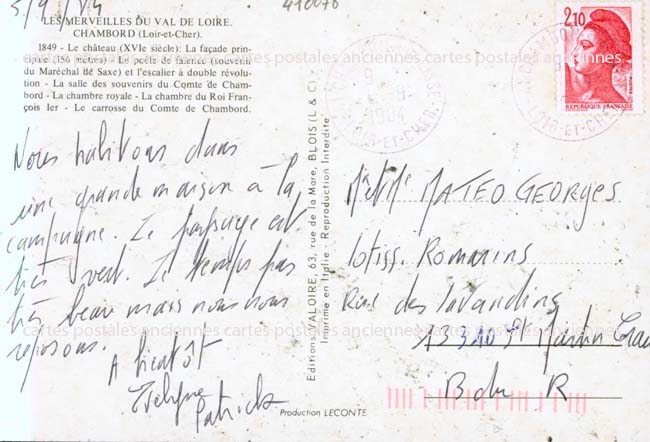 5/9/84
410070
LES MERVEILLES DU VAL DE LOIRE.
CHAMBORD (Loir-et-Cher).
1849 - Le château (XVIe siècle): La façade prin-
cipale (156 mètres) - Le poêle de faïence (souvenir
du Maréchal de Saxe) et l'escalier à double révolu-
tion - La salle des souvenirs du Comte de Cham-
bord - La chambre royale - La chambre du Roi Fran-
çois Ier - Le carrosse du Comte de Chambord.
Nous habitons dans
une grande maison à la
campagne. Le paysage est
très vert. Le temps pas
très beau mais nous nous
reposons.
A bientôt
Evelyne
Patrick
Editions VALOIRE, 63, rue de la Mare, BLOIS (L & C)
Imprimé en Italie - Reproduction Interdite
Production LECONTE
2,10
REPUBLIQUE FRANCAISE
1984
LOIR-ET-CHER
LOIR-ET-CHER
Mr et Me MATEO GEORGES
lotiss. Romarins
Rue des lavandins
13310 St Martin Crau
B du R
cartes postales anciennes cartes postales anciennes cartes postales anciennes
cartes postales anciennes cartes postales anciennes cartes postales anciennes